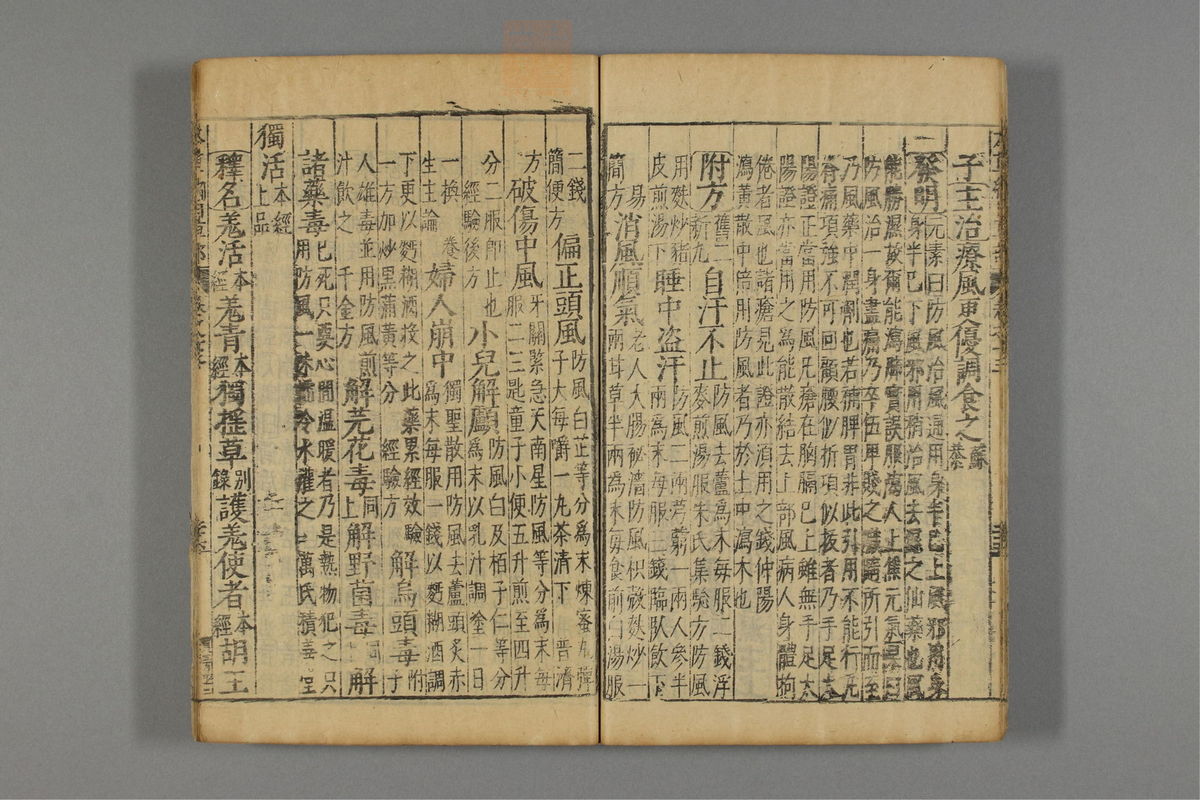 子主治療風更優調食之蘇恭
發明元素曰防風治風通用身半已上風邪用身
身半已下風邪用梢治風去濕之仙藥也風
能勝濕故爾能瀉肺實誤服瀉人上焦元氣杲曰
防風治一身盡痛乃卒伍卑賤之職隨所引而至
乃風藥中潤劑也若補脾胃非此引用不能行凡
脊痛項強不可回顧腰似折項似拔者乃手足太
陽證正當用防風凡瘡在胸膈已上雖無手足太
陽證亦當用之為能散結去上部風病人身體拘
倦者風也諸瘡見此證亦須用之錢仲陽
瀉黃散中倍用防風者乃於土中瀉木也
附方舊二新九自汗不止防風去蘆為末每服二錢浮
麥煎湯服朱氏集驗方防風
用麩炒豬
皮煎湯下睡中盜汗防風二兩芎藭一兩人參半
兩為末每服三錢臨臥飲下
易
簡方消風順氣老人大腸秘澁防風枳殼麩炒一
兩甘草半兩為末每食前白湯服
二錢
簡便方偏正頭風防風白芷等分為末煉蜜丸彈
子大每嚼一丸茶清下普濟
方破傷中風牙關緊急天南星防風等分為末每
服二三匙童子小便五升煎至四升
分二服即止也
經驗後方小兒解顱防風白及栢子仁等分
為末以乳汁調塗一日
一換養
生主論婦人崩中獨聖散用防風去蘆頭炙赤
為末每服一錢以麪糊酒調
下更以麪糊酒投之此藥累經效驗
一方加炒黑蒲黃等分經驗方解烏頭毒附子
人雄毒並用防風煎
汁飲之千金方解芫花毒同上解野菌毒同上解
諸藥毒已死只要心間溫暖者乃是熱物犯之只
用防風一味擂冷水灌之萬氏積善堂
獨活本經上品
釋名羌活本經羌青本經獨搖草別錄護羌使者本經胡王